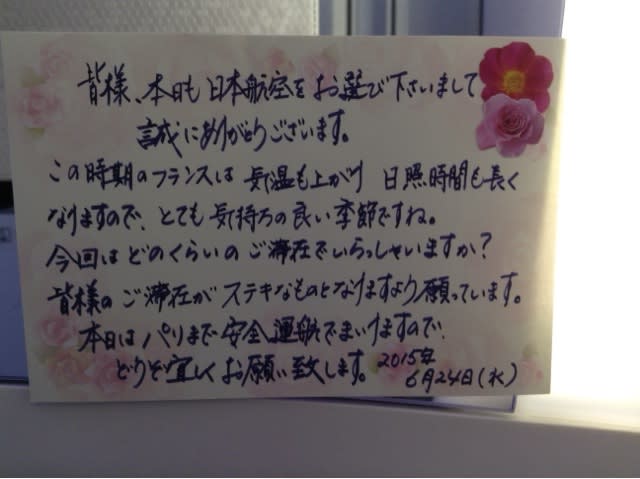 皆様、本日も日本航空をお選び下さいまして
誠にありがとうございます。
この時期のフランスは 気温も上がり 日照時間も長く
なりますので、とても気持ちの良い季節ですね。
今回はどのくらいのご滞在でいらっしゃいますか?
皆様のご滞在がステキなものとなりますよう願っています。
本日はパリまで安全運航でまいりますので、
どうぞ宜しくお願い致します。 2015年
6月24日(水)